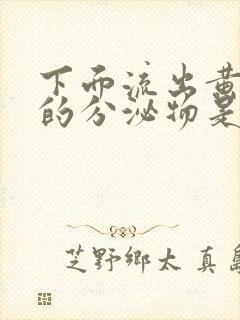 下面流出黄
的分泌物是
芝野鄉太 真島